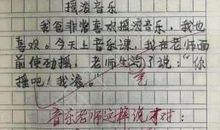 摇滚音乐
我爸非常喜欢摇滚音乐，我也
喜欢。今天上音乐课，我在老师面
前使劲摇，老师生气了说：“你
摇吧！我滚。”
音乐老师这样说才对：